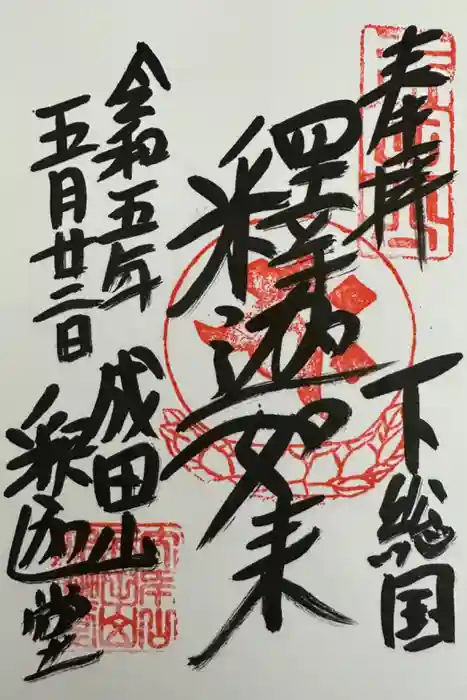 奉拝
下総国
釋迦如来
令和五年
五月廿二日
成田山
釈迦堂